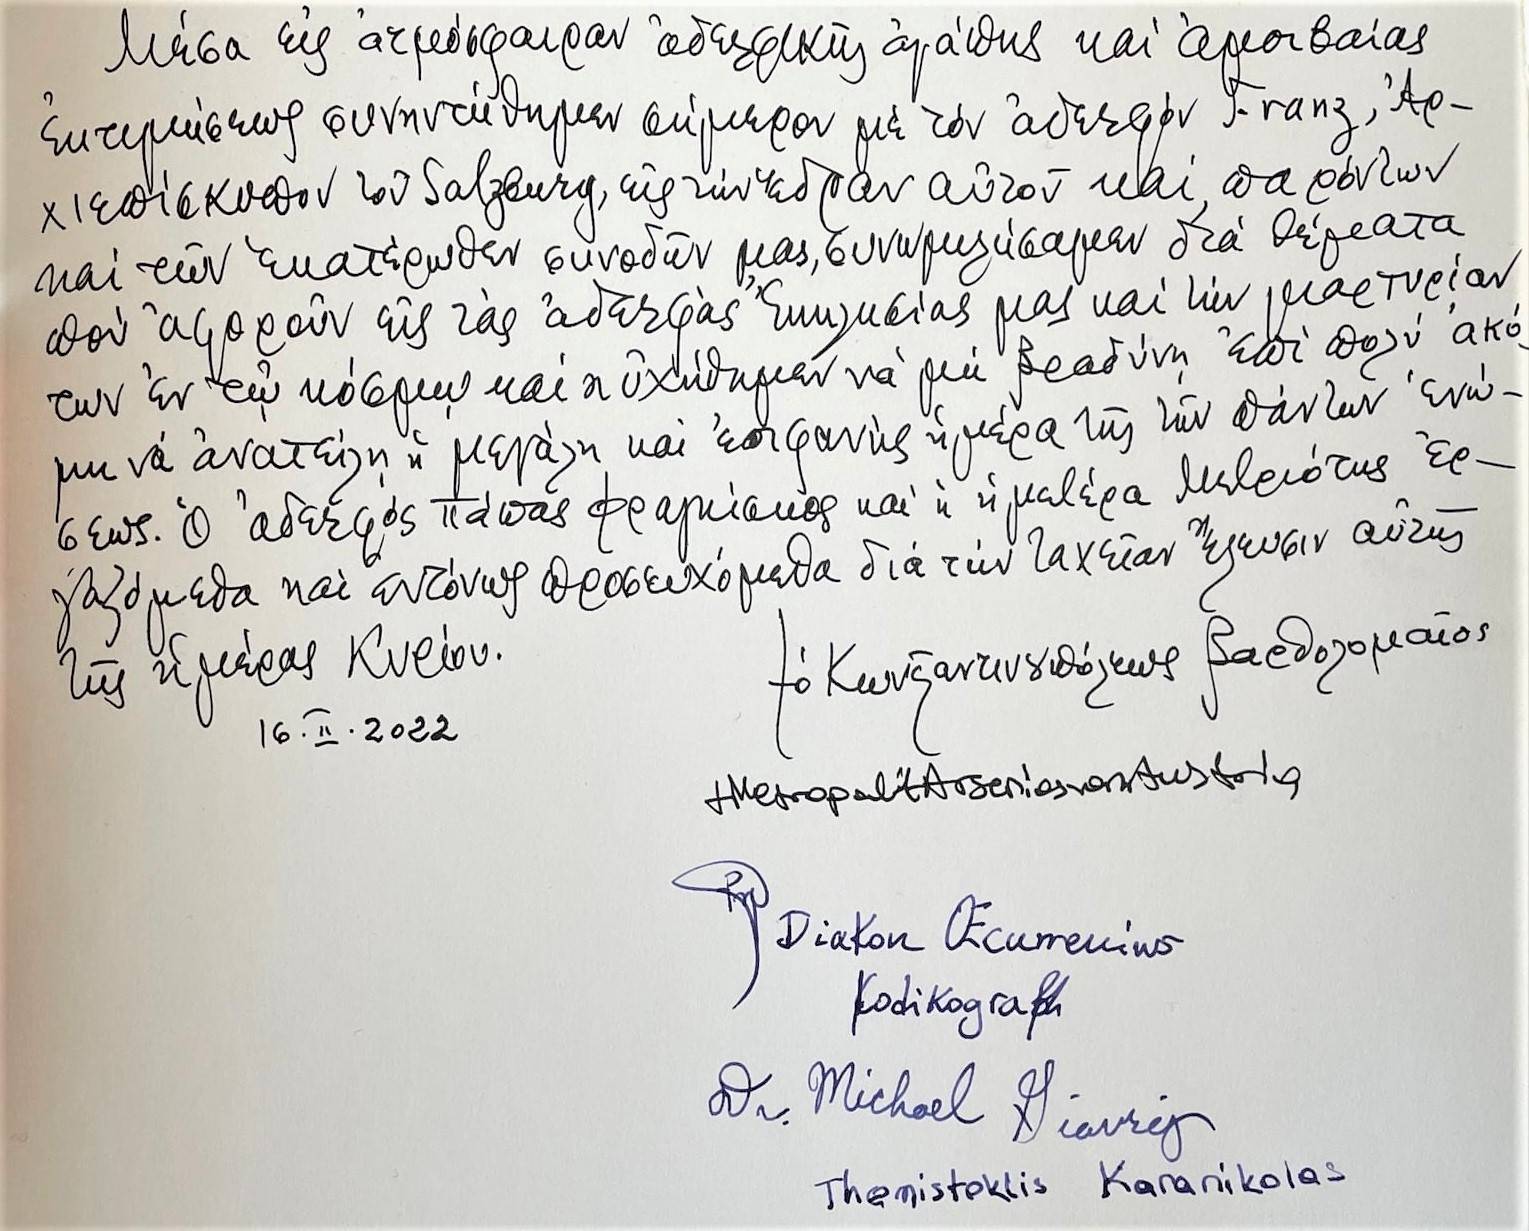 Μέσα εἰς ἀτμόσφαιραν ἀδελφικῆς ἀγάπης καί ἀμοιβαίας
ἐκτιμήσεως συνηντήθημεν σήμερον μέ τόν ἀδελφόν Franz, Ἀρ-
χιεπίσκοπον τοῦ Salzburg, εἰς τήν ἕδραν αὐτοῦ καί, παρόντων
καί τῶν ἑκατέρωθεν συνοδῶν μας, συνωμιλήσαμεν διά θέματα
πού ἀφοροῦν εἰς τάς ἀδελφάς Ἐκκλησίας μας καί τήν μαρτυρίαν
των ἐν τῷ κόσμῳ καί ηὐχήθημεν νά μή βραδύνῃ ἐπί πολύ ἀκό-
μη νά ἀνατείλῃ ἡ μεγάλη καί ἐπιφανής ἡμέρα τῆς τῶν πάντων ἑνώ-
σεως. Ὁ ἀδελφός Πάπας Φραγκίσκος καί ἡ ἡμετέρα Μετριότης ἐρ-
γαζόμεθα καί ἐντόνως προσευχόμεθα διά τήν ταχεῖαν ἔλευσιν αὐτῆς
τῆς ἡμέρας Κυρίου.
16.II.2022
† ὁ Κωνσταντινουπόλεως Βαρθολομαῖος
+Metropolit Arsenios von Austria
Diakon Œcumenius
Kodikograph
Dr. Michael
Themistoklis Karanikolas